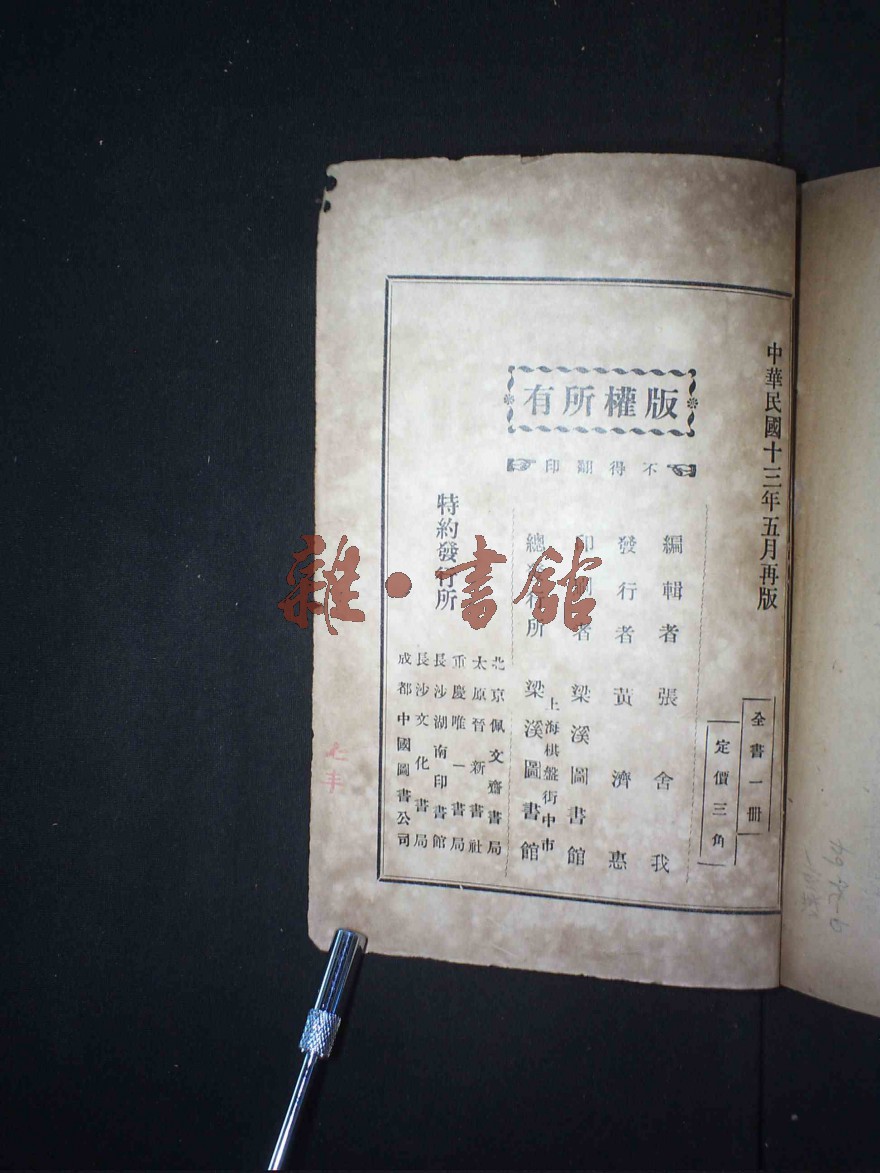 中華民國十三年五月再版
全書一冊
定價三角
版權所有
不得翻印
編輯者 張舍我
發行者 黃濟惠
印刷者 梁溪圖書館
上海棋盤街中市
總發行所 梁溪圖書館
特約發行所
北京佩文齋書局
太原晉新書社
重慶唯一書局
長沙湖南印書館
長沙文化書局
成都中國圖書公司
雜·書館